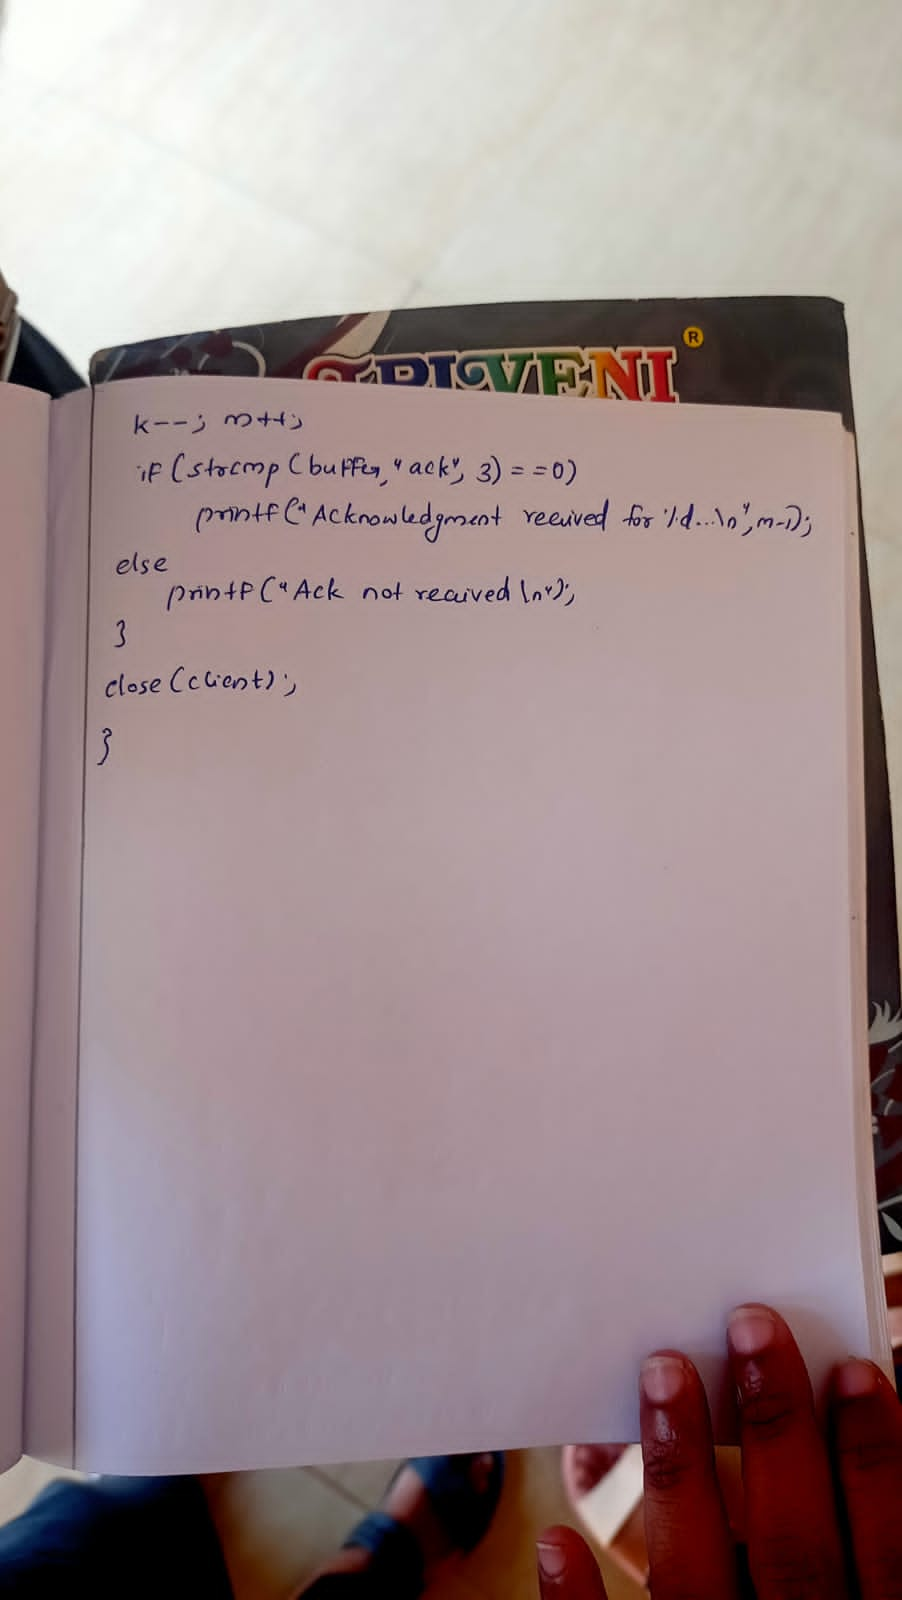 TRIVENI ®
k--; m++;
if (strcmp (buffer, "ack", 3) = =0)
printf ("Acknowledgment received for %d...\n", m-1);
else
printf ("Ack not recived \n");
}
close (client);
}